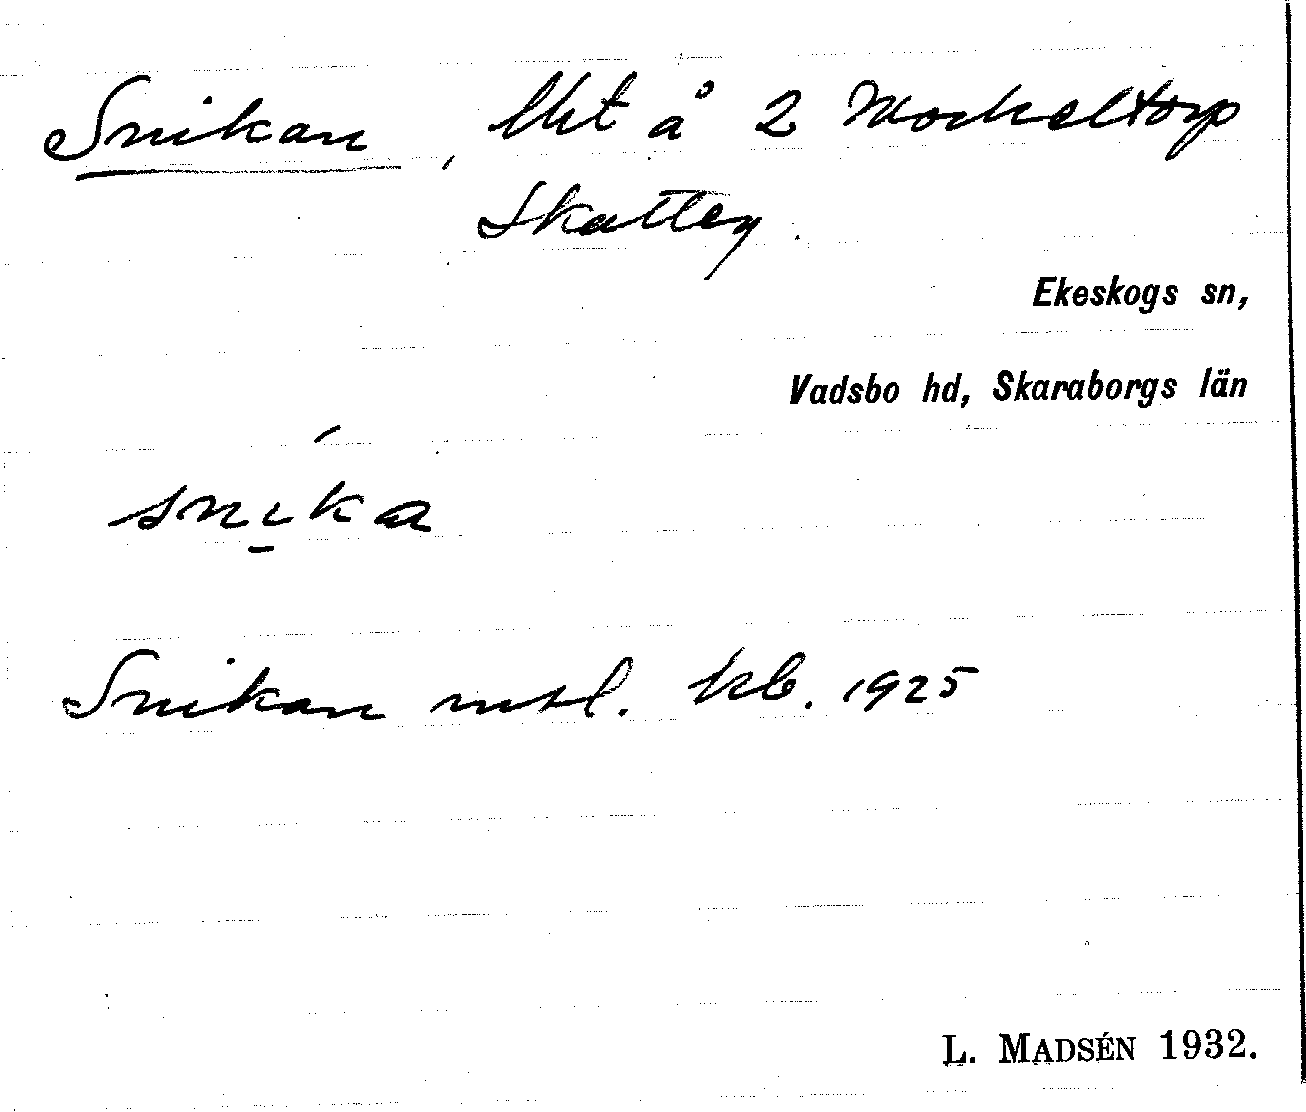 Snikan, lht å 2 Mockeltorp
Skatteg.
Ekeskogs sn,
Vadsbo hd, Skaraborgs län
snika
Snikan kb. 1925
L. MADSÉN 1932.